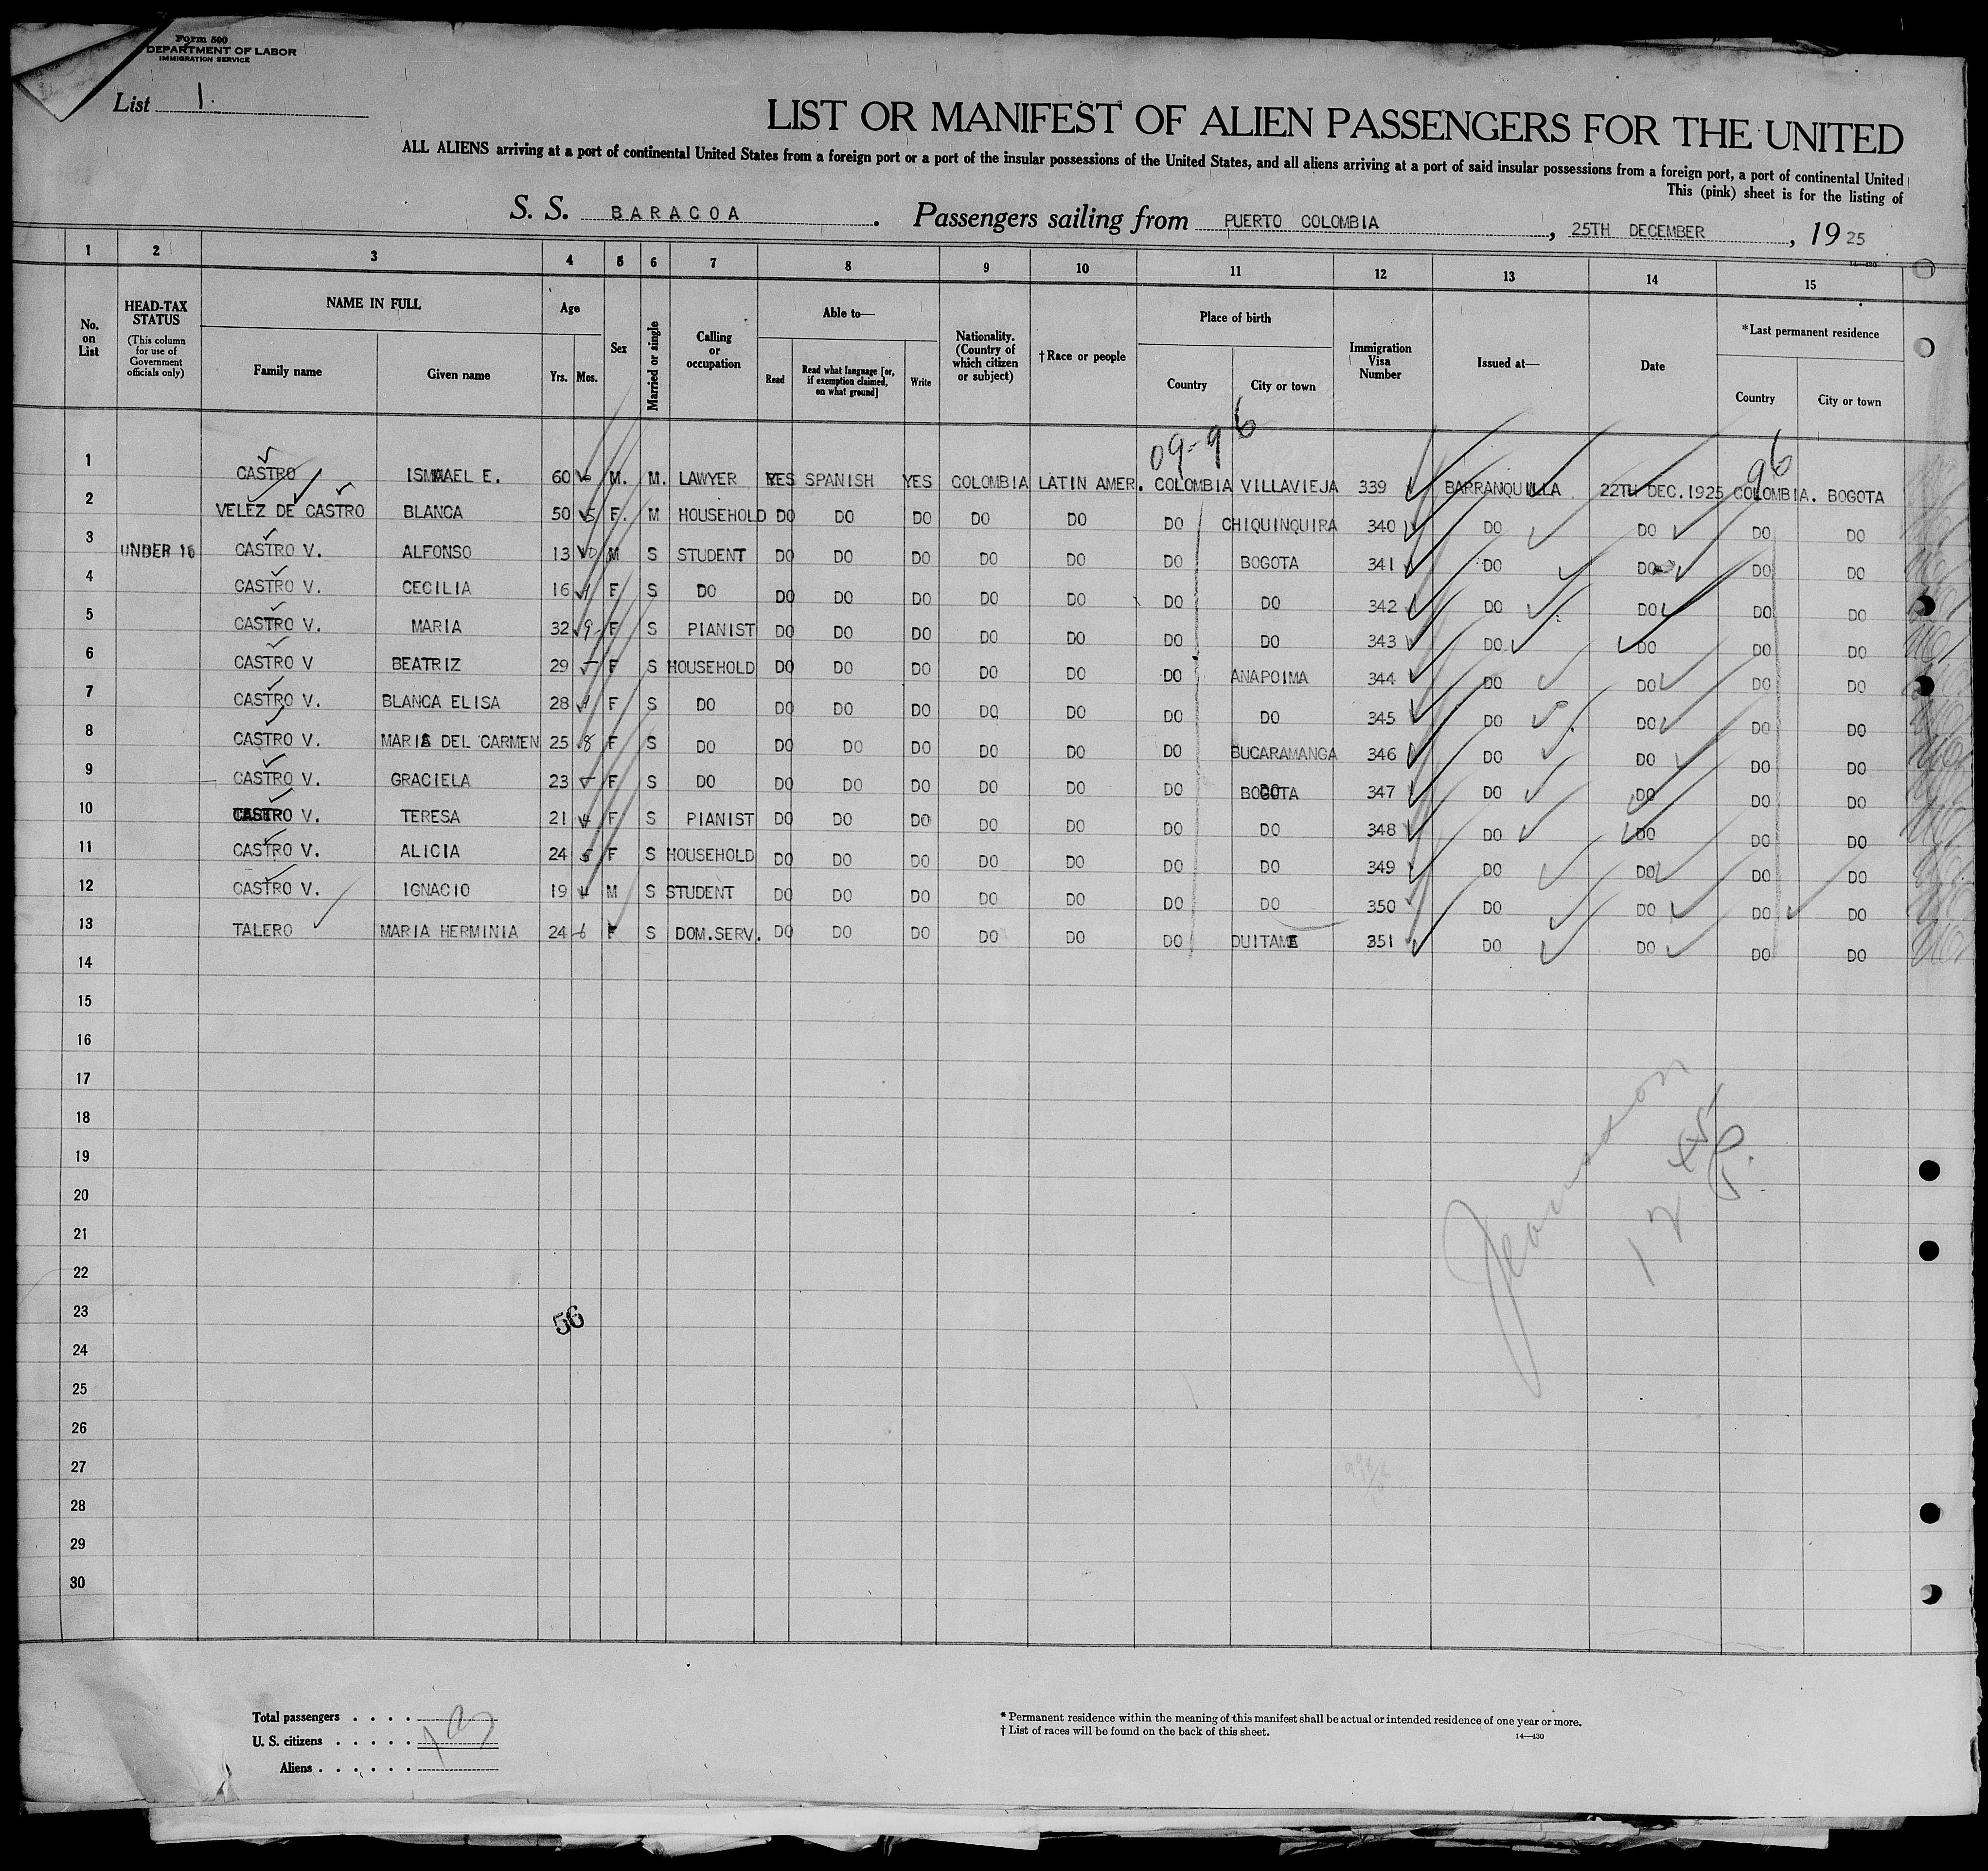 Form 500
DEPARTMENT OF LABOR
IMMIGRATION SERVICE
List 1.
LIST OR MANIFEST OF ALIEN PASSENGERS FOR THE UNITED
ALL ALIENS arriving at a port of continental United States from a foreign port or a port of the insular possessions of the United States, and all aliens arriving at a port of said insular possessions from a foreign port, a port of continental United
This (pink) sheet is for the listing of
S. S. BARACOA. Passengers sailing from PUERTO COLOMBIA, 25TH DECEMBER, 19 25
14—430
1 2 3 4 5 6 7 8 9 10 11 12 13 14 15
No. on List
HEAD-TAX STATUS (This column for use of Government officials only)
NAME IN FULL
Family name
Given name
Age
Yrs. Mos.
Sex
Married or single
Calling or occupation
Able to—
Read
Read what language [or, if exemption claimed, on what ground]
Write
Nationality. (Country of which citizen or subject)
†Race or people
Place of birth
Country
City or town
Immigration Visa Number
Issued at—
Date
*Last permanent residence
Country
City or town
09-96
96
1 CASTRO ISMAEL E. 60 M. M. LAWYER YES SPANISH YES COLOMBIA LATIN AMER. COLOMBIA VILLAVIEJA 339 BARRANQUILLA 22TH DEC.1925 COLOMBIA. BOGOTA
2 VELEZ DE CASTRO BLANCA 50 5 F. M HOUSEHOLD DO DO DO DO DO DO CHIQUINQUIRA 340 DO DO DO DO
3 UNDER 16 CASTRO V. ALFONSO 13 M S STUDENT DO DO DO DO DO DO BOGOTA 341 DO DO DO DO
4 CASTRO V. CECILIA 16 F S DO DO DO DO DO DO DO DO 342 DO DO DO DO
5 CASTRO V. MARIA 32 9 F S PIANIST DO DO DO DO DO DO DO 343 DO DO DO DO
6 CASTRO V BEATRIZ 29 F S HOUSEHOLD DO DO DO DO DO DO ANAPOIMA 344 DO DO DO DO
7 CASTRO V. BLANCA ELISA 28 F S DO DO DO DO DO DO DO DO 345 DO DO DO DO
8 CASTRO V. MARIA DEL CARMEN 25 8 F S DO DO DO DO DO DO DO BUCARAMANGA 346 DO DO DO DO
9 CASTRO V. GRACIELA 23 F S DO DO DO DO DO DO DO BOGOTA 347 DO DO DO DO
10 CASTRO V. TERESA 21 4 F S PIANIST DO DO DO DO DO DO DO 348 DO DO DO DO
11 CASTRO V. ALICIA 24 5 F S HOUSEHOLD DO DO DO DO DO DO DO 349 DO DO DO DO
12 CASTRO V. IGNACIO 19 4 M S STUDENT DO DO DO DO DO DO DO 350 DO DO DO DO
13 TALERO MARIA HERMINIA 24 6 F S DOM.SERV. DO DO DO DO DO DO DUITAME 351 DO DO DO DO
14
15
16
17
18
19
20
21
22
23
24
25
26
27
28
29
30
56
Total passengers . . . .
U. S. citizens . . . . .
Aliens . . . . . .
13
* Permanent residence within the meaning of this manifest shall be actual or intended residence of one year or more.
† List of races will be found on the back of this sheet.
14—430